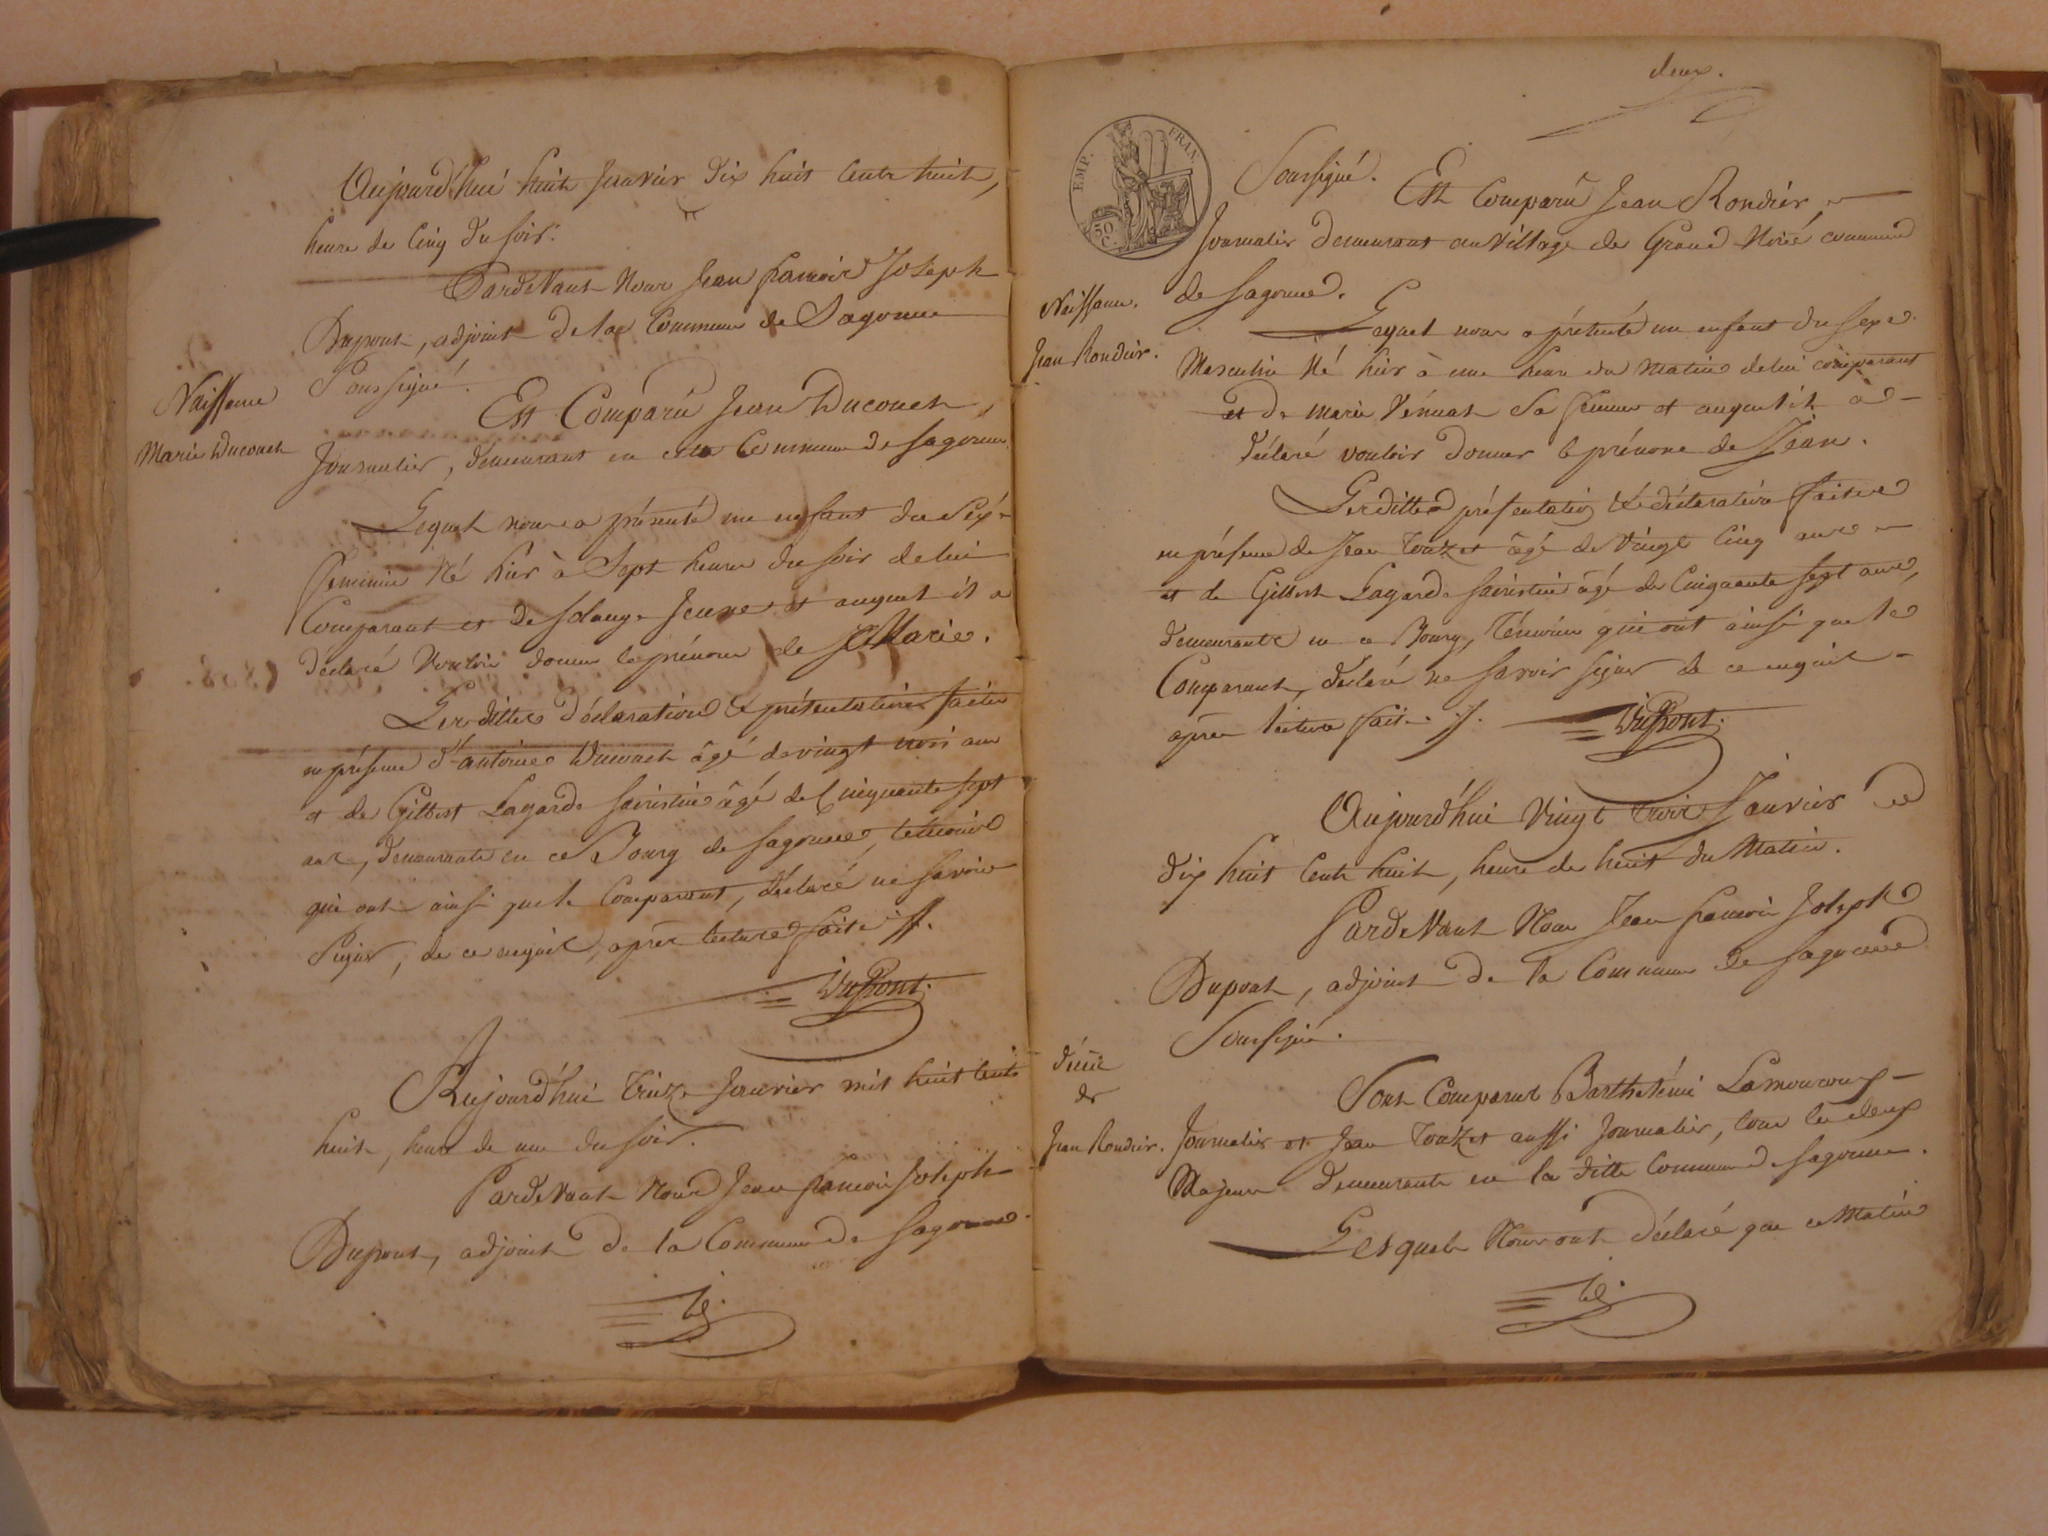 Aujourd'hui huit janvier dix huit cents huit,
heure de cinq du soir.
Pardevant Nous Jean françois Joseph
Dupont, adjoint de la Commune de Sagonne
Soussigné.
Naissance
Marie Ducouet
Est Comparu Jean Ducouet,
Journalier, demeurant en cette Commune de Sagonne
Lequel nous a présenté un enfant du Sexe
feminin Né hier à Sept heures du soir de lui
Comparant et de Solange et auquel il a
déclaré Vouloir donner le prénom de Marie.
Les dittes déclaration & présentation faites
en présence d'antoine Ducouet âgé de vingt trois ans
et de Gilbert Lagarde sacristin âgé de Cinquante sept
ans, demeurants en ce Bourg de Sagonne, témoins
qui ont ainsi que le Comparant, déclaré ne savoir
Signer, de ce enquis, après lecture faite ./.
DuPont.
Aujourd'hui Treize Janvier mil huit cents
huit, heure de une du soir.
Pardevant Nous Jean françois Joseph
Dupont, adjoint de la Commune de Sagonne.
deux.
EMP. FRAN.
50 C.
Soussigné.
Est Comparu Jean Rondier,
Journalier demeurant au Village de Grand commune
de Sagonne.
Naissance.
Jean Rondier.
Lequel nous a présenté un enfant du sexe
Masculin Né hier à une heure du Matin de lui comparant
et de Marie sa femme et auquel il a
déclaré vouloir donner le prénom de Jean.
Les dittes présentation & déclaration faites
en présence de Jean Touzet âgé de Vingt Cinq ans
et de Gilbert Lagarde sacristin âgé de Cinquante sept ans,
demeurants en ce Bourg, Témoins qui ont ainsi que le
Comparant, déclaré ne savoir signer de ce enquis
après lecture faite ./.
DuPont.
Aujourd'hui Vingt Trois Janvier
dix huit Cents huit, heure de huit du Matin.
Pardevant Nous Jean françois Joseph
Dupont, adjoint de la Commune de Sagonne
Soussigné.
de
Jean Rondier.
Sont Comparus Barthelémi Lamoureux
Journalier et Jean Touzet aussi Journalier, tous les deux
Majeurs demeurants en la ditte Commune de Sagonne.
Lesquels Nous ont déclaré que ce Matin